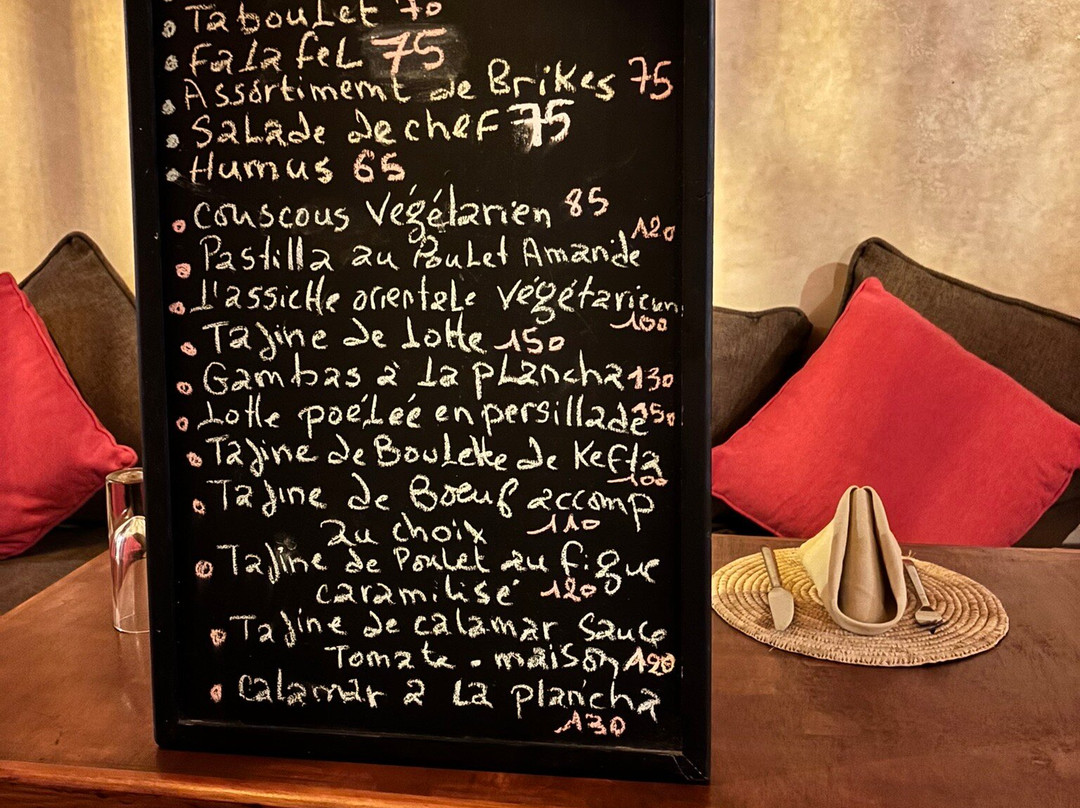 Taboulet 70
Falafel 75
Assortiment de Brikes 75
Salade de chef 75
Humus 65
couscous végétarien 85
Pastilla au Poulet Amande 120
L'assiette orientale végétarienn 100
Tajine de Lotte 150
Gambas à la plancha 130
Lotte poéleé en persillade 150
Tajine de Boulette de Kefta 100
Tajine de Bœuf accomp
au choix 110
Tajine de Poulet au figue
caramilisé 120
Tajine de calamar Sauce
Tomate . maison
calamar a La plancha
130